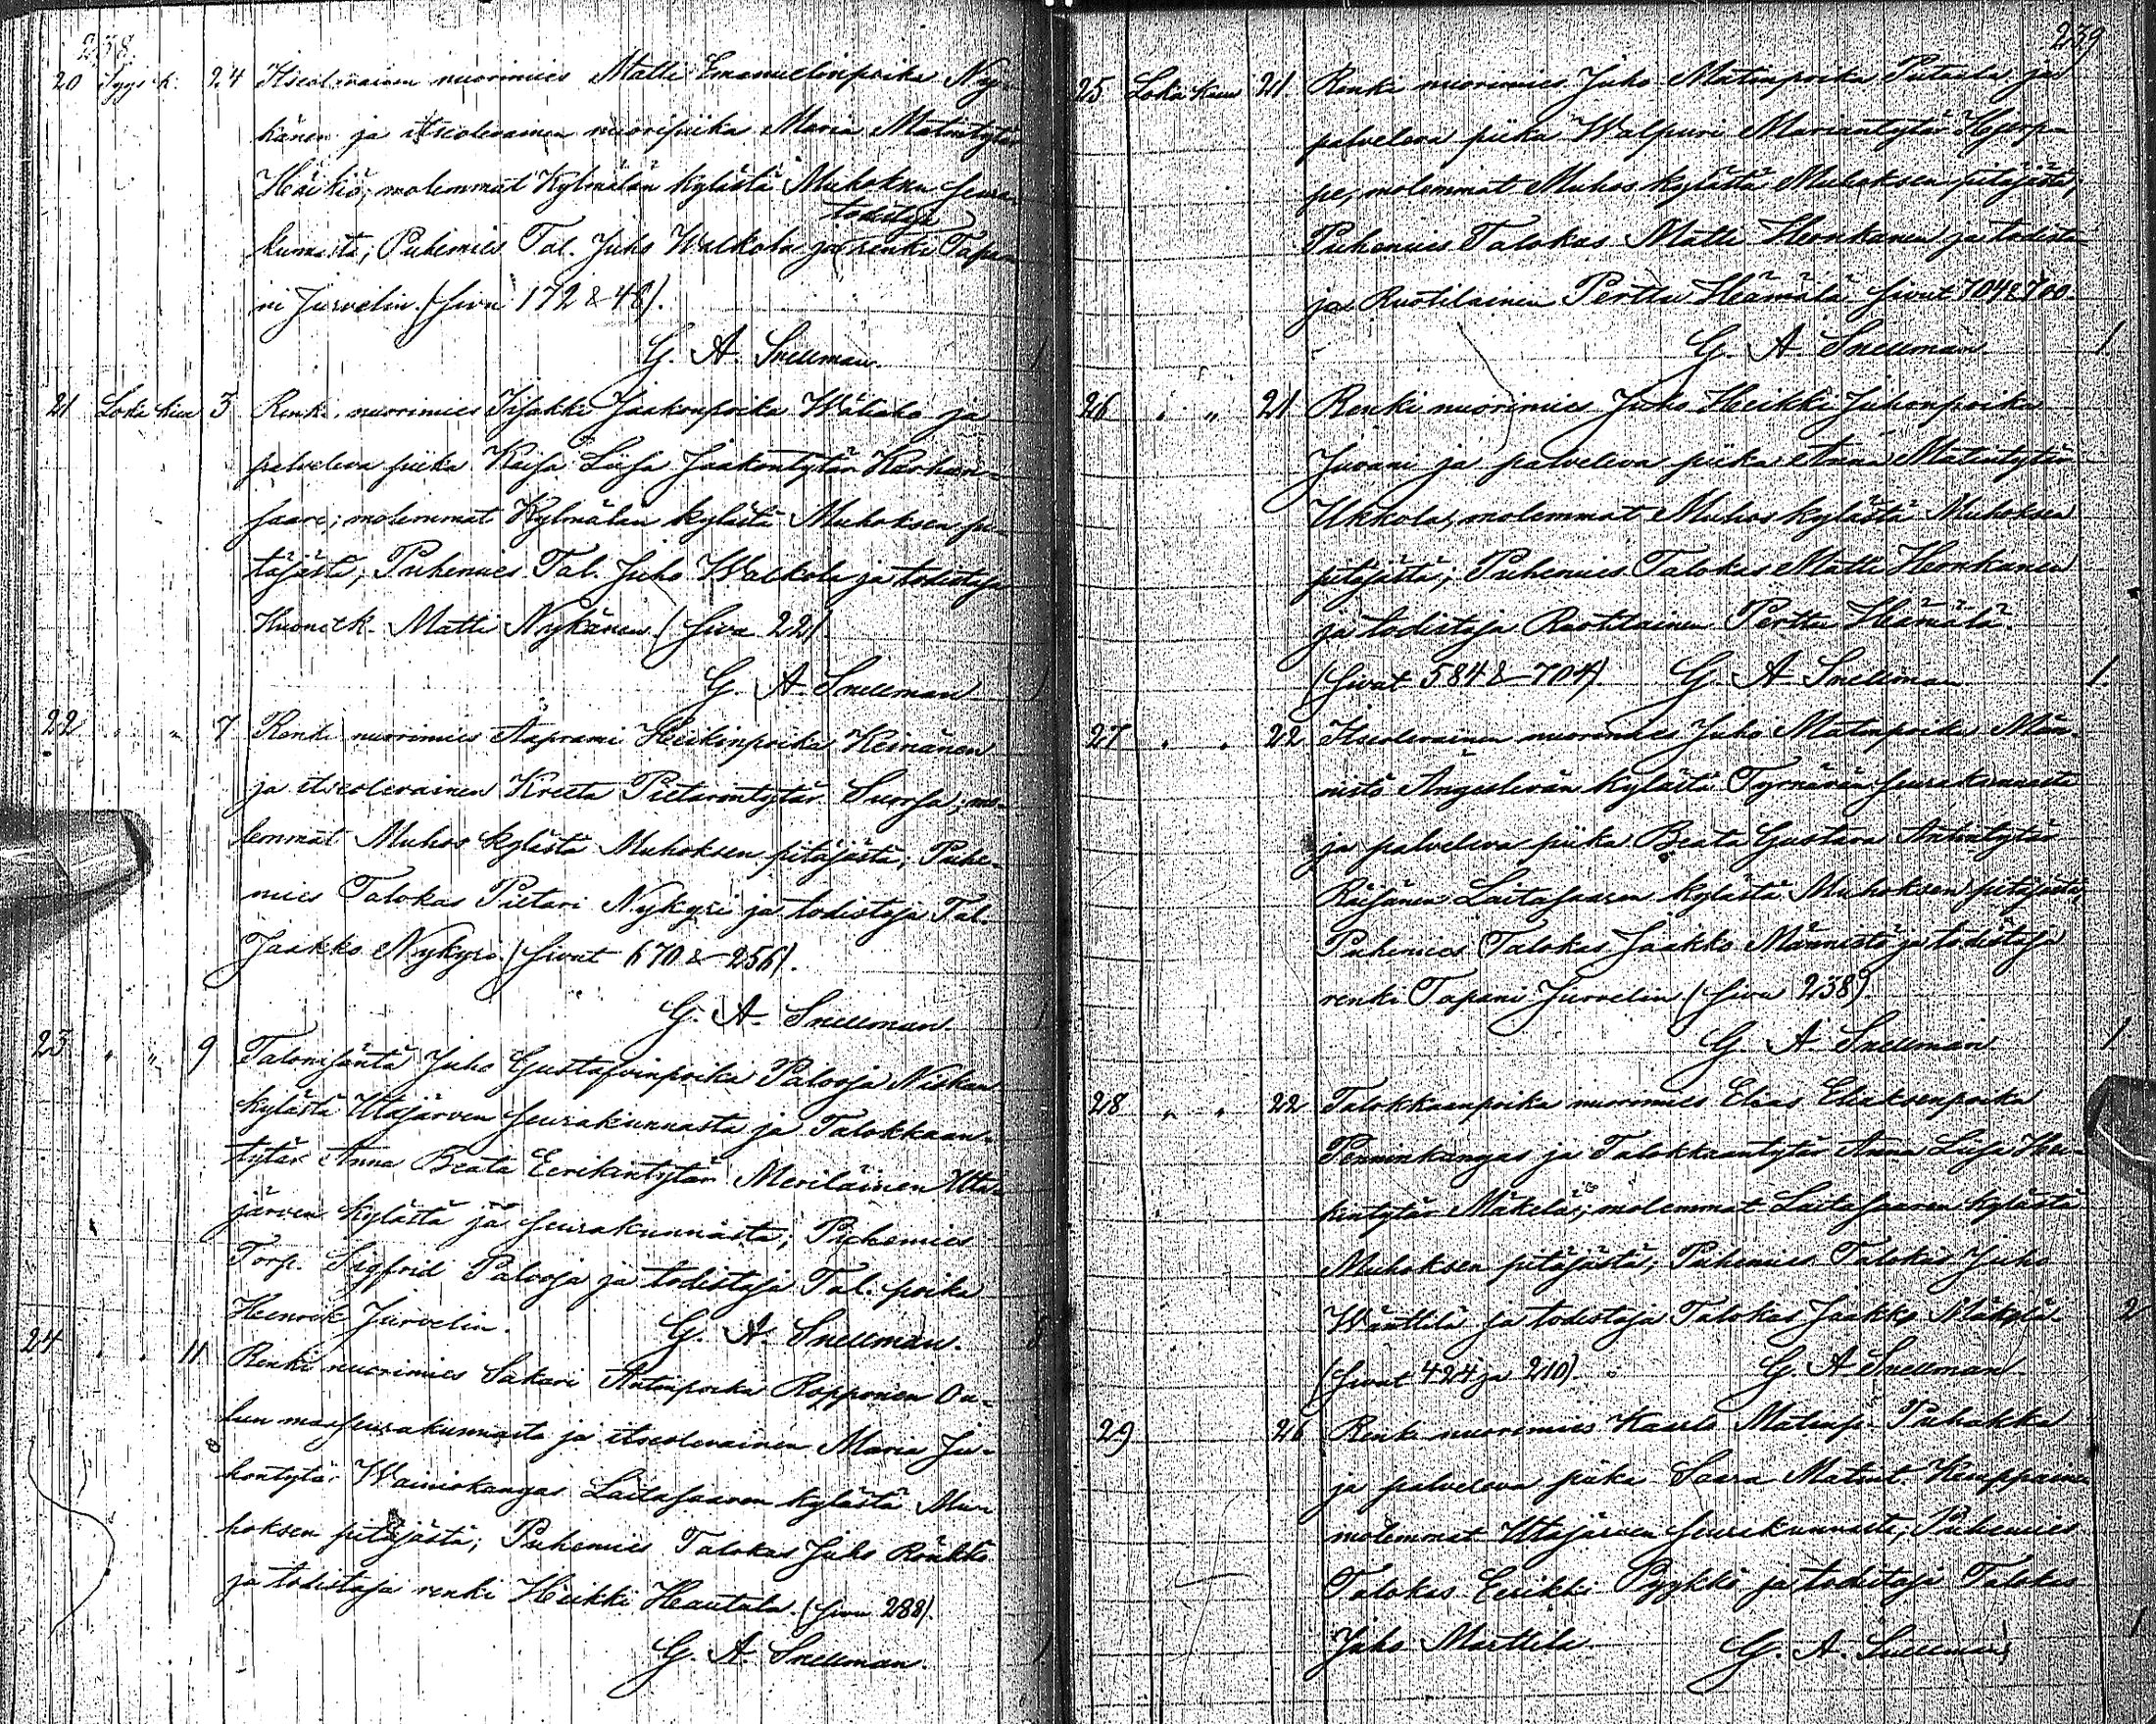 238
20 Syys k. 24 Itseolevainen nuorimies Matti Emanuelinpoika Ny-
känen ja itseolevainen nuoripiika Maria Matintytär
Häikiö; molemmat Kylmälän kylästä Muhoksen seura-
todistaja
kunnasta; Puhemies Tal. Juho Walkola ja renki Tapa-
ni Jurvelin. (Sivu 172 & 48).
G. A. Snellman.
21 Loka kuu 3 Renki nuorimies Iisakki Jaakonpoika Wäliaho ja
palveleva piika Kaisa Liisa Jaakontytär Karhun-
saari; molemmat Kylmälän kylästä Muhoksen pi-
täjästä; Puhemies Tal. Juho Walkola ja todistaja
Matti Nykänen. (Sivu 22).
G. A. Snellman
22 " " 7 Renki nuorimies Aaprami Heikinpoika Keinänen
ja itseolevainen Kreeta Pietarintytär Suorsa; mo-
lemmat Muhos kylästä Muhoksen pitäjästä; Puhe-
mies Talokas Pietari Nykyri ja todistaja Tal.
Jaakko Nykyri. (Sivut 670 & 256).
G. A. Snellman
23 " " 9 Talonisäntä Juho Gustafvinpoika Palooja Niskan
kylästä Utajärven seurakunnasta ja Talokkaan-
tytär Anna Beata Eerikintytär Meriläinen Uta-
järven kylästä ja seurakunnasta; Puhemies
Torp. Sigfrid Palooja ja todistaja Tal. poika
Henrik Jurvelin. G. A. Snellman.
24 " " 11 Renki nuorimies Sakari Antonpoika Ropponen Ou-
lun maaseurakunnasta ja itseolevainen Maria Ju-
hontytär Wainiokangas Laitasaaren kylästä Mu-
hoksen pitäjästä; Puhemies Talokas Juho Rönkkö
ja todistaja renki Heikki Hautala. (Sivu 288).
G. A. Snellman.
239
25 Loka kuu 21 Renki nuorimies Juho Matinpoika Putaala ja
palveleva piika Walpuri Mariantytär Hyerp-
pe, molemmat Muhos kylästä Muhoksen pitäjästä;
Puhemies Talokas Matti Heonkanen ja todista-
ja Ruotilainen Perttu Hämälä. Sivut 704 & 700.
G. A. Snellman 1
26 " " 21 Renki nuorimies Juho Heikki Juhonpoika
Juvani ja palveleva piika Anna Matintytär
Ukkola, molemmat Muhos kylästä Muhoksen
pitäjästä; Puhemies Talokas Matti Heonkanen
ja todistaja Ruotilainen Perttu Hämälä.
(Sivut 584 & 704). G. A. Snellman 1.
27 " " 22 Itseolevainen nuorimies Juho Matinpoika Män-
nistö Angeslevän kylästä Tyrnävän seurakunnasta
ja palveleva piika Beata Gustava Antintytär
Räisänen Laitasaaren kylästä Muhoksen pitäjästä,
Puhemies Talokas Jaakko Männistö ja todistaja
renki Tapani Jurvelin (Sivu 238)
G. A. Snellman 1
28 " " 22 Talokkaanpoika nuorimies Elias Eliaksenpoika
Penninkangas ja Talokkaantytär Anna Liisa Hei-
kintytär Mäkelä; molemmat Laitasaaren kylästä
Muhoksen pitäjästä; Puhemies Talokas Juho
Wänttilä ja todistaja Talokas Jaakko Mäkelä. 2
(Sivut 424 ja 210). G. A. Snellman.
29 26 Renki nuorimies Kaarlo Matinp. Puhakka
ja palveleva piika Saara Matint. Kemppainen
molemmat Utajärven seurakunnasta; Puhemies
Talokas Eerikki Pyykkö ja todistaja Talokas
Juho Marttila. G. A. Snellman 1